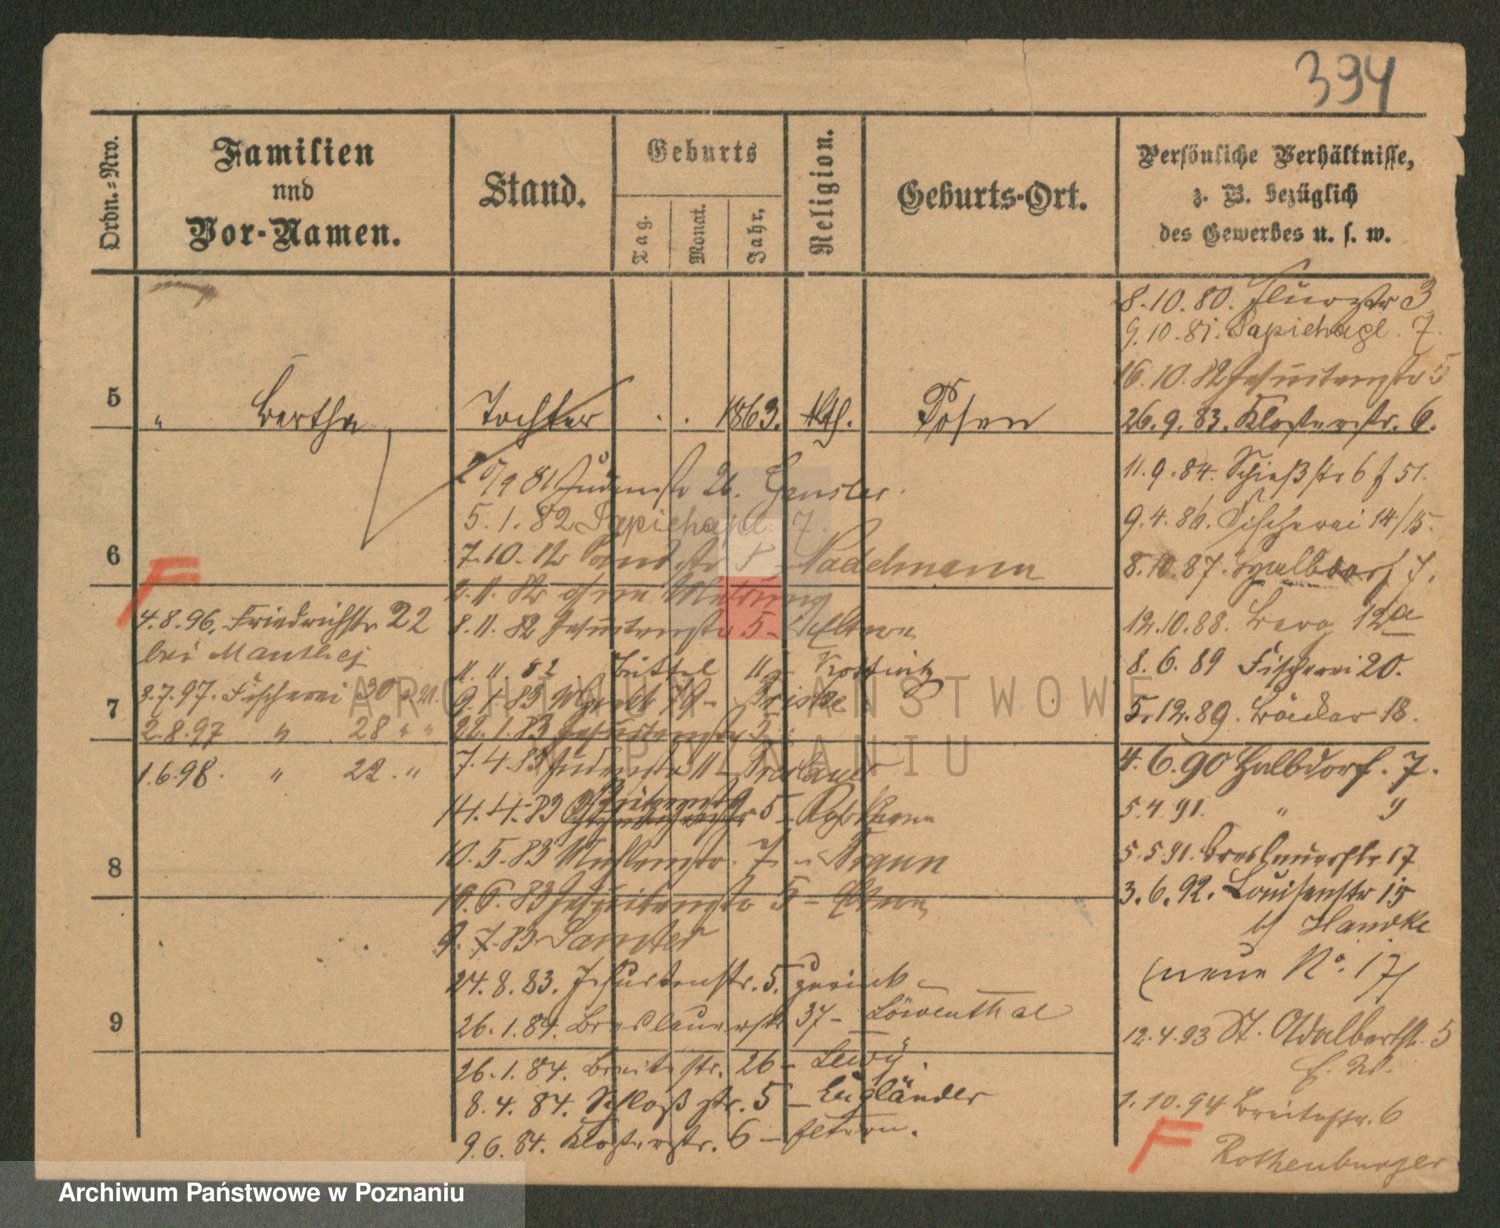 394
Ordn.-Nro.
Familien
und
Vor-Namen.
Stand.
Geburts
Tag.
Monat.
Jahr.
Religion.
Geburts-Ort.
Persönliche Verhältnisse,
z. B. bezüglich
des Gewerbes u. s. w.
8.10.80. Flurstr 3
9.10.81. Sapiehapl. 7.
16.10.82 Jesuitenstr 5
5 " Bertha, Tochter . . 1863. kth. Posen
26.9.83. Klosterstr. 6.
20/9 81 Judenstr 26. Hensler.
11.9.84. Schießstr 6 51.
5.1.82 Sapiehapl. 7.
9.4.86. Fischerei 14/15
6
7.10.82 Sandstr 8 Nadelmann
8.10.87. Halbdorf 7.
F
9.11.82 ohne Meldung
4.8.96. Friedrichstr. 22
8.11.82 Jesuitenstr 5 - Eltern
12.10.88. Berg 12a
bei
11.11.82
8.6.89 Fischerei 20.
3.7.97. Fischerei 30
9.1.83
7
5.12.89. Bäcker 18.
2.8.97 " 28 " "
22.1.83 Jesuitenstr 5
1.6.98. " 22. "
7.4.83 Judenstr 11 - Friedlaender
4.6.90 Halbdorf. 7.
14.4.83 5 -
5.4.91. " 9
10.5.83 Mühlenstr. 7 -
5.5.91. Breslauerstr 17
8
10.6.83 Jesuitenstr 5 - Eltern
3.6.92. Louisenstr 15
b/ Handke
9.7.83 Samter
(neue No. 17)
24.8.83. Jesuitenstr. 5. zurück -
9
26.1.84. Breslauerstr 37 - Löwenthal
12.4.93 St. Adalbertstr. 5
26.1.84. Breitestr. 26 - Lewy.
8.4.84. Schloßstr. 5 - Engländer
1.10.94 Breitestr. 6
9.6.84. Klosterstr. 6 - Eltern.
F
Rothenburger
ARCHIWUM PAŃSTWOWE
W POZNANIU
Archiwum Państwowe w Poznaniu